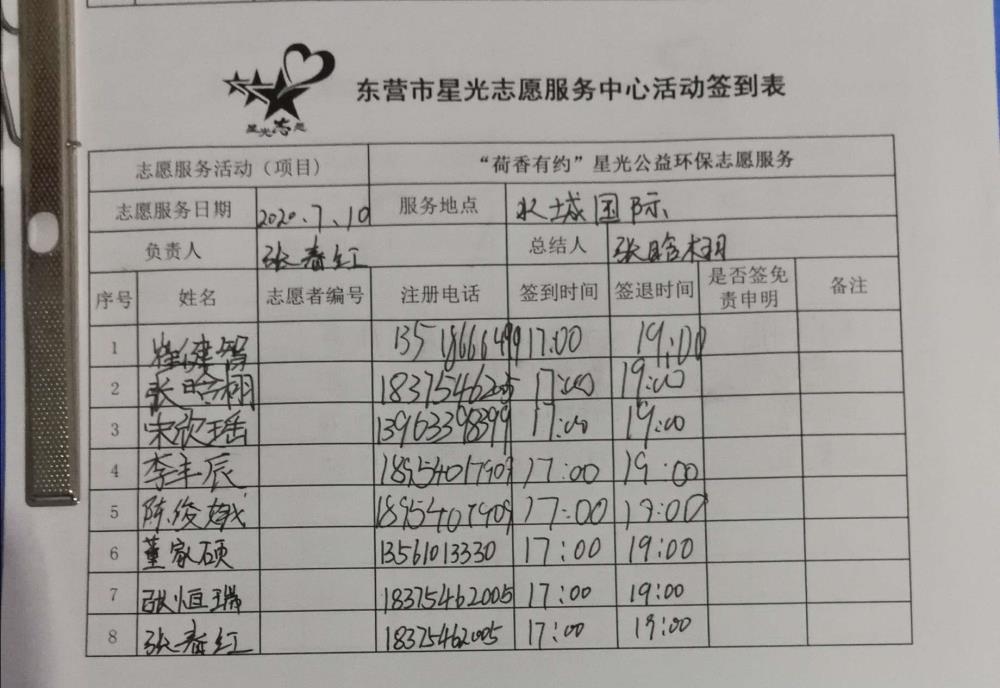 星光志愿
东营市星光志愿服务中心活动签到表
志愿服务活动（项目） “荷香有约”星光公益环保志愿服务
志愿服务日期 2020.7.10 服务地点 水城国际
负责人 张春红 总结人 张晗栩
序号 姓名 志愿者编号 注册电话 签到时间 签退时间 是否签免责申明 备注
1 崔健智 17:00 19:00
2 张晗栩 18375462005 17:00 19:00
3 宋欣瑶 13963398399 17:00 19:00
4 李丰辰 18954017909 17:00 19:00
5 陈俊娥 18954017909 17:00 19:00
6 董家硕 13561013330 17:00 19:00
7 张恒瑞 18375462005 17:00 19:00
8 张春红 18375462005 17:00 19:00